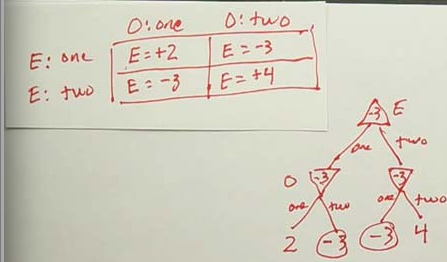 O: one O: two
E: one E=+2 E=-3
E: two E=-3 E=+4
-3 E
one two
O -3 -3
one two one two
2 -3 -3 4